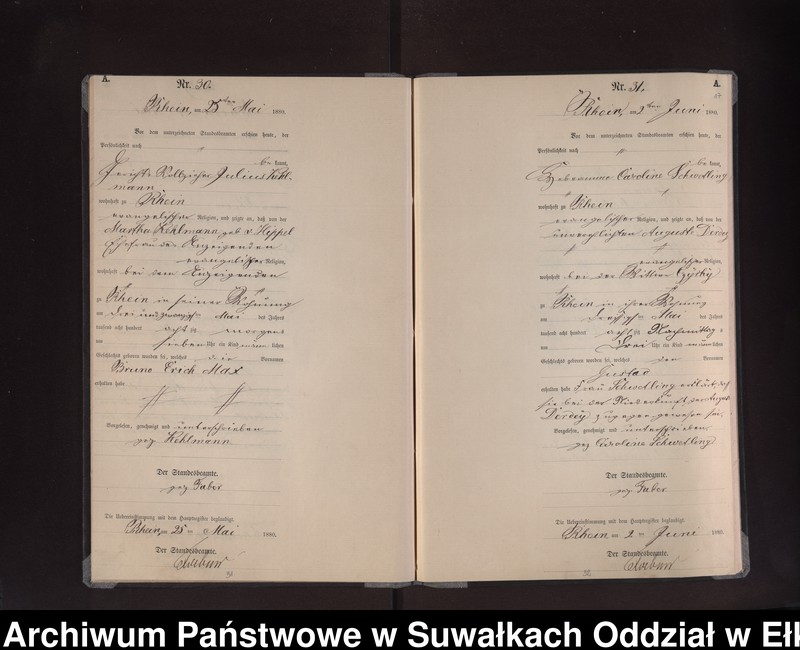 A.
Nr. 30.
Rhein, am 25ten Mai 1880.
Vor dem unterzeichneten Standesbeamten erschien heute, der
Persönlichkeit nach
be kannt,
Gerichts Vollzieher Julius Kehl-
mann,
wohnhaft zu Rhein
evangelischer Religion, und zeigte an, daß von der
Martha Kehlmann geb. v. Hippel
Ehefrau des Anzeigenden
evangelischer Religion,
wohnhaft bei dem Anzeigenden
zu Rhein in seiner Wohnung
am drei und zwanzigsten Mai des Jahres
tausend acht hundert acht zig morgens
um sieben Uhr ein Kind männ lichen
Geschlechts geboren worden sei, welches die Vornamen
Bruno Erich Max
erhalten habe
Vorgelesen, genehmigt und unterschrieben
gez. Kehlmann
Der Standesbeamte.
gez. Faber
Die Uebereinstimmung mit dem Hauptregister beglaubigt.
Rhein, am 25ten Mai 1880.
Der Standesbeamte.
30.
Nr. 31.
A.
Rhein, am 2ten Juni 1880.
Vor dem unterzeichneten Standesbeamten erschien heute, der
Persönlichkeit nach
be kannt,
Hebeamme Caroline Schwetling
wohnhaft zu Rhein
evangelischer Religion, und zeigte an, daß von der
unverehelichten Auguste Dordey
evangelischer Religion,
wohnhaft bei der Wittwe
zu Rhein in ihrer Wohnung
am dreißigsten Mai des Jahres
tausend acht hundert acht zig Nachmittags
um drei Uhr ein Kind männlichen
Geschlechts geboren worden sei, welches den Vornamen
Gustav
erhalten habe Frau Schwetling erklärt, daß
sie bei der Niederkunft der August
Dordey zugegen gewesen sei.
Vorgelesen, genehmigt und unterschrieben
gez. Caroline Schwetling
Der Standesbeamte.
gez. Faber
Die Uebereinstimmung mit dem Hauptregister beglaubigt.
Rhein, am 2ten Juni 1880.
Der Standesbeamte.
31.
Archiwum Państwowe w Suwałkach Oddział w Ełk